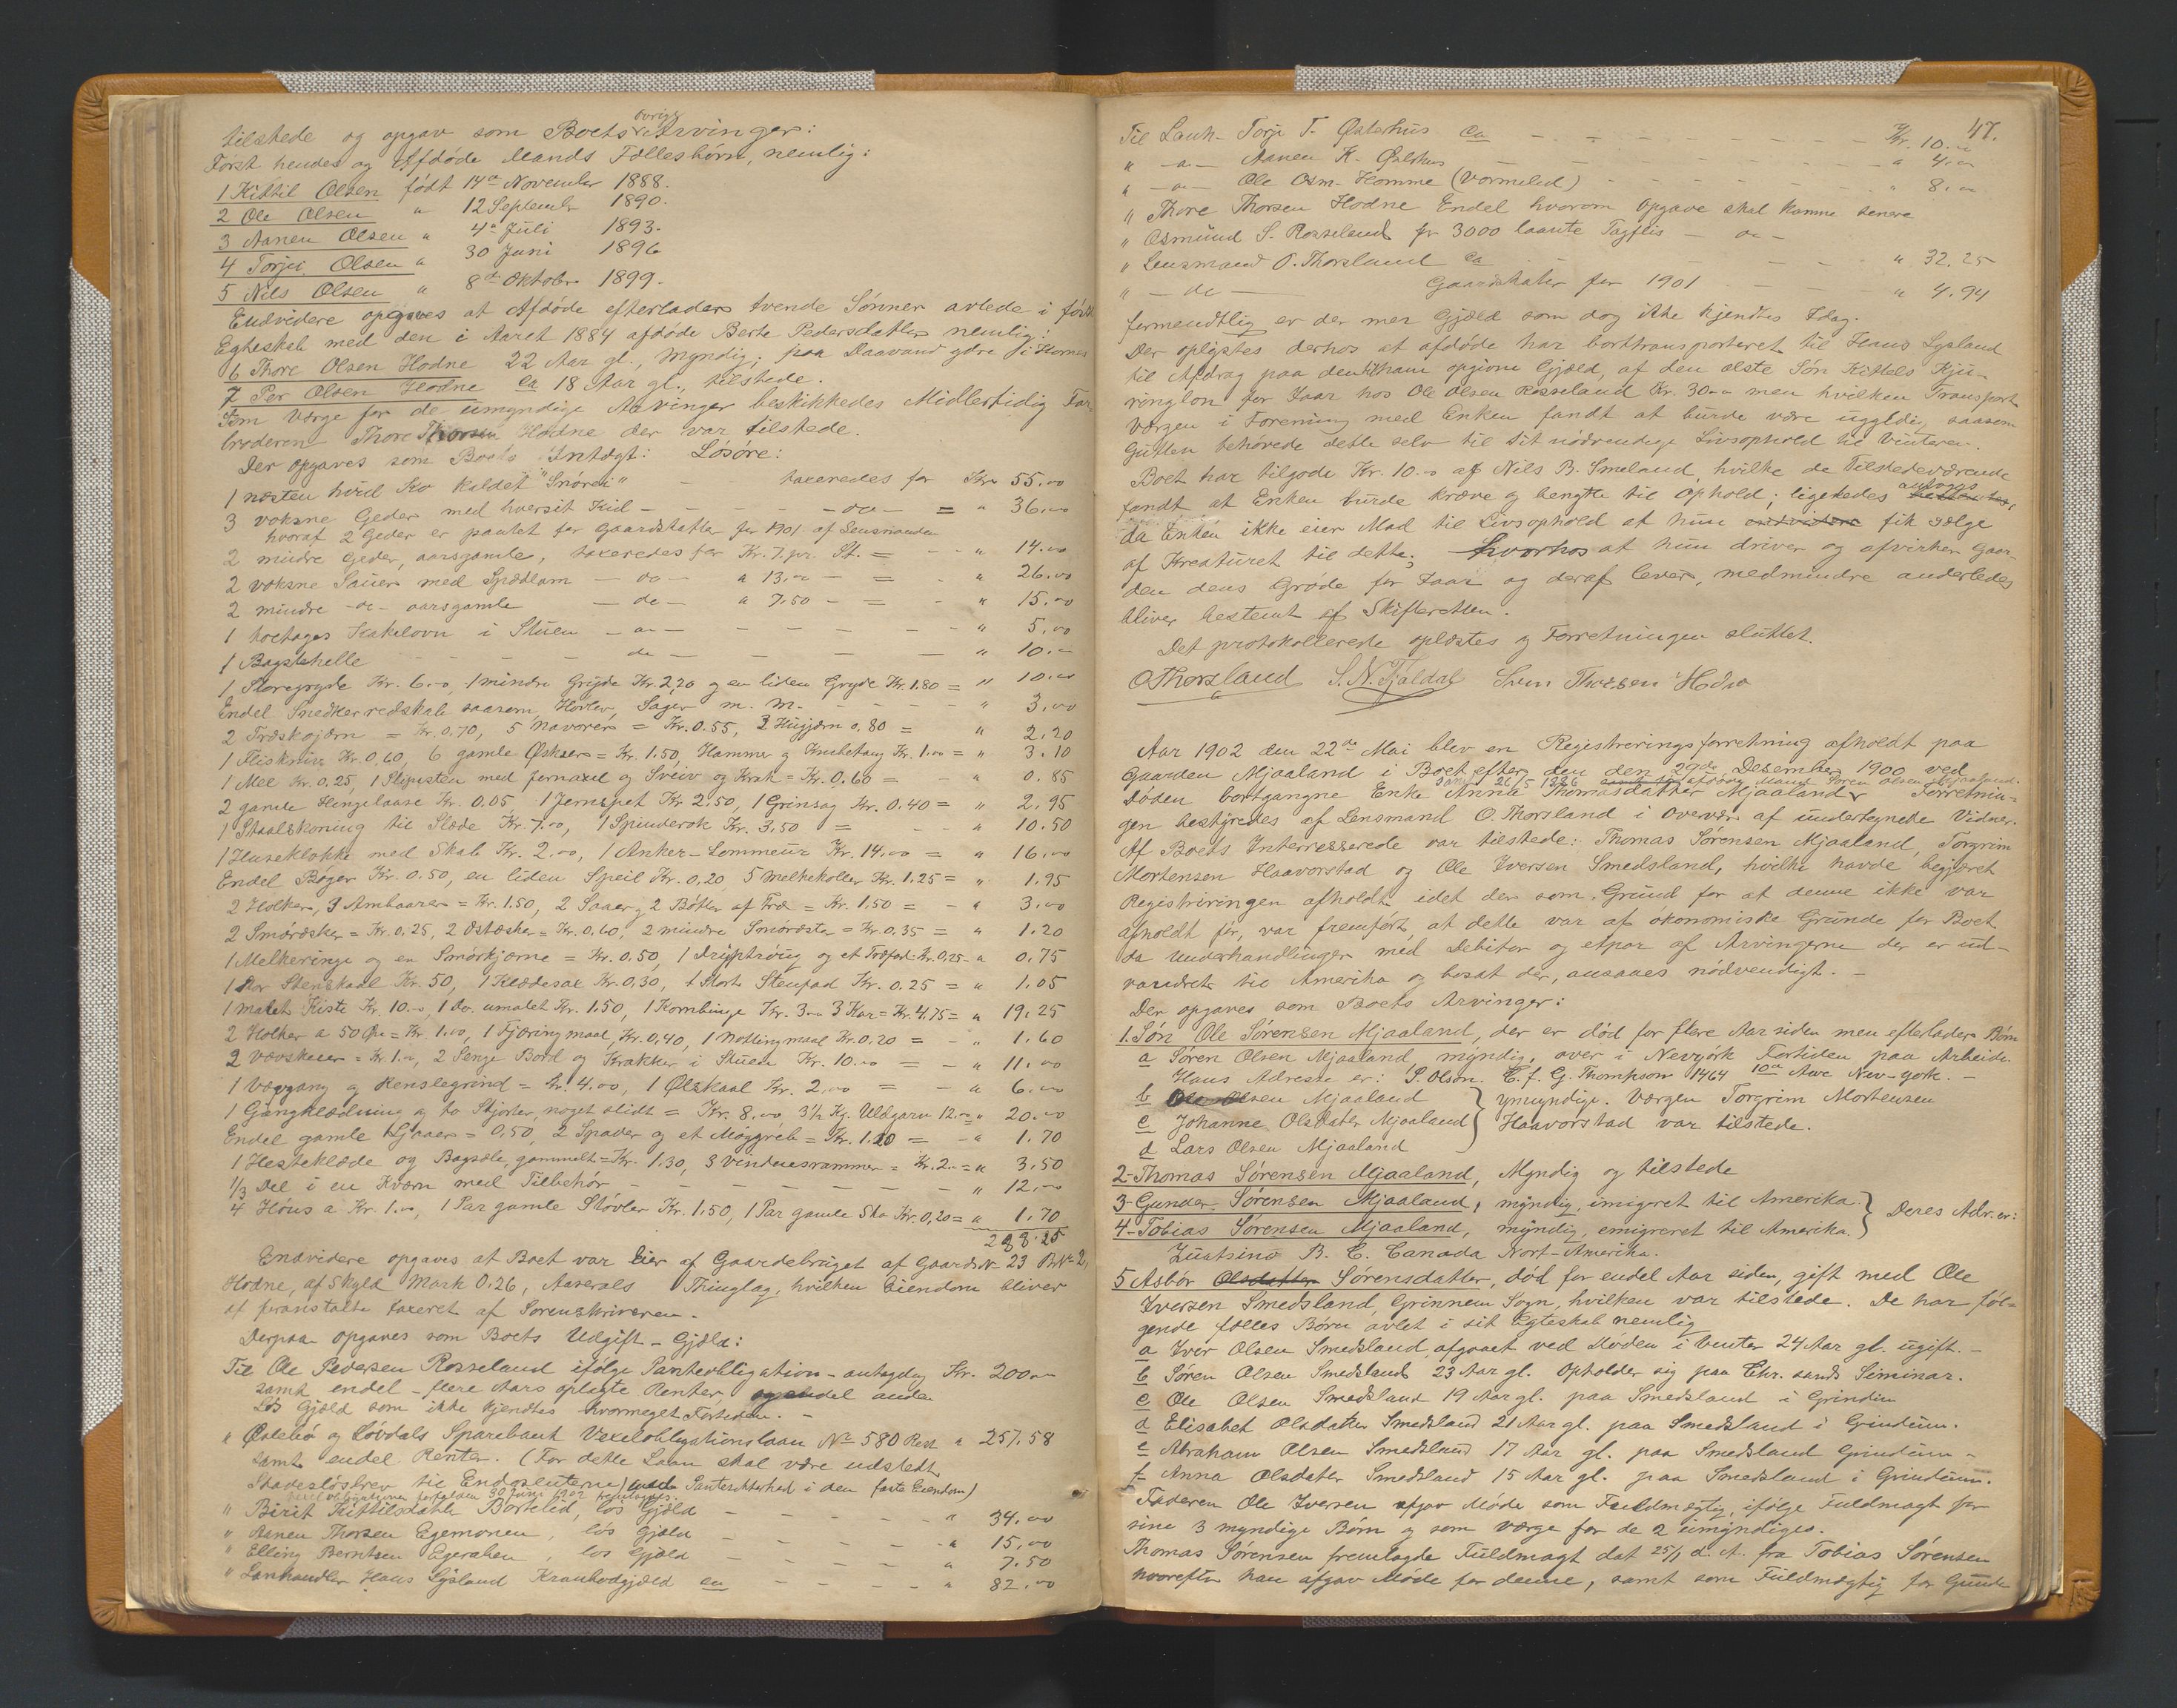 tilstede og opgav som Boets øvrige Arvinger:
Först hendes og Afdöde Mands Fællesbörn, nemlig:
1 Kittil Olsen födt 14de November 1888.
2 Ole Olsen " 12 September 1890.
3 Aanen Olsen " 4de Juli 1893.
4 Torjei Olsen " 30 Juni 1896
5 Nils Olsen " 8de Oktober 1899.
Endvidere opgaves at Afdöde efterlader tvende Sönner avlede i först
Egteskab med den i Aaret 1884 afdöde Berte Pedersdatter nemlig:
6 Thore Olsen Hodne 22 Aar gl., Myndig; paa Daavand ydre i Hornes
7 Per Olsen Hodne ca 18 Aar gl., tilstede.
Som Værge for de umyndige Arvinger beskikkedes Midlertidig Far-
broderen Thore Thorsen Hodne der var tilstede.
Der opgaves som Boets Indtægt: Lösöre:
1 næsten hvid Ko kaldet "Snörei" - taxeredes for Kr. 55.00
3 voksne Geder med hversit Kid - - - do - = " 36.00
hvoraf 2 Geder er pantet for Gaardskatter for 1901 af Lensmanden
2 mindre Geder, aarsgamle, taxeredes for Kr. 7. pr St. = - - " 14.00
2 voksne Sauer med Spædlam - do - a 13.00 - = - " 26.00
2 mindre - do - aarsgamle - do - a 7.50 - = - " 15.00
1 toetages Kakelovn i Stuen - do - - - - " 5.00
1 Bagstehelle - - - do - - - " 10.00
1 Storegryde Kr. 6.00, 1 mindre Gryde Kr. 2,20 og en liden Gryde Kr. 1.80 = " 10.00
Endel Snedkerredskab saasom Hövler, Sager m. m. - - - " 3.00
2 Træskojern = Kr. 0,70, 5 Navorer = Kr. 0.55, 2 Hugjern 0,80 = " 2.20
1 Fliskniv Kr. 0,60, 6 gamle Økser = Kr. 1.50, Hammer og Knibetang Kr. 1.00 = " 3.10
1 Mel Kr. 0.25, 1 Slipesten med Jernaxel og Sveiv og Krak = Kr. 0.60 = - " 0.85
2 gamle Hengelaase Kr. 0.05, 1 Jernspet Kr 2.50, 1 Grinsag Kr. 0.40 = " 2.95
1 Staalskoning til Slæde Kr. 7.00, 1 Spinderok Kr. 3.50 = - - " 10.50
1 Huseklokke med Skab Kr. 2.00, 1 Anker-Lommeur Kr. 14.00 = " 16.00
Endel Böger Kr. 0.50, en liden Speil Kr. 0,20, 5 Melkekoller Kr. 1.25 = " 1.95
2 Holker, 3 Ambaarer = Kr. 1.50, 2 Saaer, 2 Bötter af Træ = Kr. 1.50 = - " 3.00
2 Smöræsker = Kr. 0,25, 2 Ostæsker = Kr. 0.60, 2 mindre Smöræsker = Kr. 0.35 = " 1.20
1 Melkeringe og en Smörkjerne = Kr. 0.50, 1 Drypptroug og et Træfad = Kr. 0,25 - " 0.75
1 stor Stenskaal Kr. 50, 1 Klædesæl Kr. 0,30, 1 Stort Stenfad Kr. 0.25 = " 1.05
1 malet Kiste Kr. 10.00, 1 do. umalet Kr. 1.50, 1 Kornbinge Kr. 3.00 3 Kar = Kr. 4.75 = " 19.25
2 Holker a 50 Øre = Kr. 1.00, 1 Fjæring maal Kr. 0,40, 1 Mottingmaal Kr. 0.20 = - " 1.60
2 Vævskeier = Kr. 1.00, 2 Senge Bord og Krakker i Stuen Kr. 10.00 = - " 11.00
1 Vævgang og Renslegrind = Kr. 4.00, 1 Ølskaal Kr. 2.00 = - " 6.00
1 Gangklædning og to Skjorter noget slidt = Kr. 8.00, 3½ Kg. Uldgarn 12.00 " 20.00
Endel gamle Ljaaer = 0,50, 2 Spader og et Möggreb = Kr. 1.20 = - " 1.70
1 Hesteklæde og Bagsele, gammelt = Kr. 1.30, 3 Vinduesrammer = Kr. 2.00 = " 3.50
1/3 Del i en Kværn med Tilbehör - - - - - " 12.00
4 Höns a Kr. 1.00, 1 Par gamle Stövler Kr. 1.50, 1 Par gamle Sko Kr. 0,20 = " 1.70
288.25
Endvidere opgaves at Boet var Eier af Gaardebruget af Gaards No 23 BNo 2,
Hodne, af Skyld Mark 0.26, Aaserals Thinglag, hvilken Eiendom bliver
at foranstalte taxeret af Sorenskriveren.
Derpaa opgaves som Boets Udgift - Gjæld:
Til Ole Pedersen Rosseland ifölge Panteobligation - antagelig Kr. 200.00
samt endel - flere Aars opligte Renter og endel anden
Lös Gjæld som ikke kjendtes hvormeget Fortiden. -
" Østebö og Lövdals Sparebank Vexelobligationslaan No 580 Rest " 257.58
samt endel Renter. (For dette Laan skal være udstedt
Skadeslösbrev til Endosenterne) med Pantesikkerhed i den faste Eiendom)
" Birit Kittilsdatter Borteled, lös Gjæld - - - " 34.00
" Aanen Thorsen Egemonen, lös Gjæld - - - " 15.00
" Elling Berntsen Egeraken, lös Gjæld - - - " 7.50
" Lanhandler Hans Lysland Krambodgjæld ca - - - " 82.00
47.
Til Lanh. Torje T. Østerhus ca - - - Kr. 10.00
" - do - Aanen K. Østerhus - - - " 4.00
" - do - Ole Osm. Homme (Vormeled) - - - " 8.00
" Thore Thorsen Hodne Endel hvorom Opgave skal komme senere
" Osmund S. Rosseland for 3000 laante Tagflis - do -
" Lensmand O. Thorsland ca - - - " 32.25
" - do - Gaardskatter for 1901 - - " 4.94
formendtlig er der mer Gjæld som dog ikke kjendtes Idag.
Der oplystes derhos at afdöde har borttransporteret til Hans Lysland
til Afdrag paa den til ham opgivne Gjæld, af den ælste Sön Kittels Hju-
ringlön for Iaar hos Ole Olsen Rosseland Kr. 30.00 men hvilken Transport
Værgen i Forening med Enken fandt at burde være ugyldig saasom
Gutten behövede dette selv til sit nödvendige Livsophold til Vinteren.
Boet har tilgode Kr. 10.00 af Nils B. Smeland, hvilke de Tilstedeværende
fandt at Enken burde kræve og benytte til Ophold; ligeledes antoges
da Enken ikke eier Mad til Livsophold at hun fik sælge
af Kreaturet til dette; hvorhos at hun driver og afvirker Gaar-
den dens Gröde for Iaar og deraf lever, medmindre anderledes
bliver bestemt af Skifteretten.
Det protokollerede oplæstes og Forretningen sluttet.
OThorsland S. N. Fjaldal Thorsen Hodne
Aar 1902 den 22de Mai blev en Registreringsforretning afholdt paa
Gaarden Mjaaland i Boet efter den den 29de Desember 1900 ved
samt 26/5 1886 afdöde Mand Sören Olsen Mjaaland.
Döden bortgangne Enke Anna Thomasdatter Mjaaland. Forretnin-
gen bestyredes af Lensmand O. Thorsland i Overvær af undertegnede Vidner.
Af Boets Interresserede var tilstede: Thomas Sörensen Mjaaland, Torgrim
Mortensen Haavorstad og Ole Iversen Smedsland, hvilke havde begjæret
Registriringen afholdt idet der som Grund for at denne ikke var
afholdt för, var fremfört, at dette var af økonomiske Grunde for Boet
da Underhandlinger med Debitor og etpar af Arvingerne der er ud-
vandret til Amerika og bosat der, ansaaes nödvendigt. -
Der opgaves som Boets Arvinger:
1. Sön Ole Sörensen Mjaaland, der er död for flere Aar siden men efterlader Börn
a Sören Olsen Mjaaland, myndig, over i Nevyörk Fortiden paa Arbeide.
Hans Adresse er: S. Olson. C. f. G. Thompson 1464 10de Ave New-york. -
b Olsen Mjaaland } ymyndige. Værgen Torgrim Mortensen
c Johanne Olsdatter Mjaaland } Haavorstad var tilstede.
d Lars Olsen Mjaaland
2 - Thomas Sörensen Mjaaland, Myndig og tilstede
3 - Gunder Sörensen Mjaaland, myndig, imigreret til Amerika } Deres Adr. er:
4 - Tobias Sörensen Mjaaland, myndig, emigreret til Amerika. }
Zuatsino B. C. Canada Nort-Amerika.
5 Asbör Olsdatter Sörensdatter, död for endel Aar siden, gift med Ole
Iversen Smedsland, Grinnem Sogn, hvilken var tilstede. De har föl-
gende fælles Börn avlet i sit Egteskab nemlig
a Iver Olsen Smedsland, afgaaet ved Döden i Vinter 24 Aar gl. ugift. -
b Sören Olsen Smedsland 23 Aar gl. Opholder sig paa Chr.sands Seminar.
c Ole Olsen Smedsland 19 Aar gl. paa Smedsland i Grindum
d Elisabet Olsdatter Smedsland 21 Aar gl. paa Smedsland i Grindum.
e Abraham Olsen Smedsland 17 Aar gl. paa Smedsland Grindum -
f Anna Olsdatter Smedsland 15 Aar gl. paa Smedsland i Grindum.
Faderen Ole Iversen afgav Möde som Fuldmægtig ifölge Fuldmagt for
sine 3 myndige Börn og som Værge for de 2 umyndiges.
Thomas Sörensen fremlagde Fuldmagt dat 25/1 d. A. fra Tobias Sörensen
hvorefter han afgav Möde for denne, samt som Fuldmægtig for Gunder